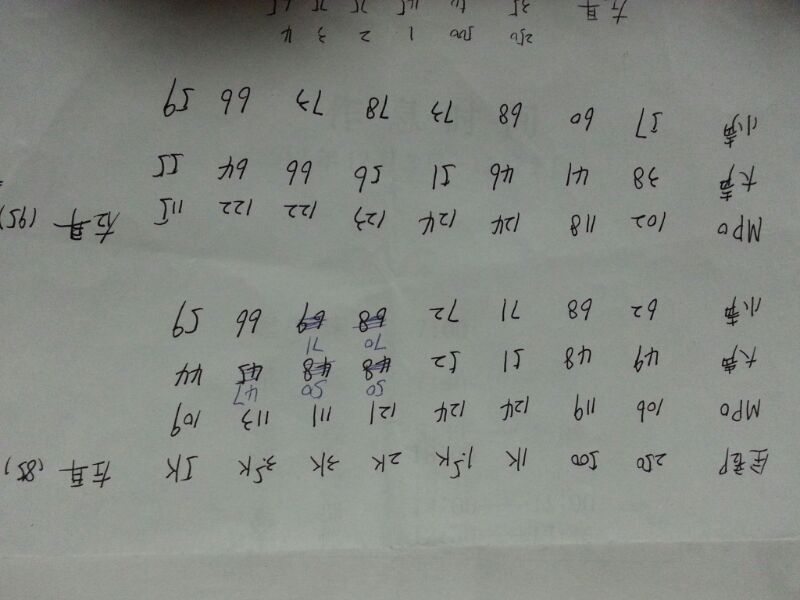 250 500 1K 1.5K 2K 3K 3.5K 5K 左耳 (85)
MPO 106 119 124 124 121 111 113 109
50 50 47
大声 49 48 51 52 48 48 45 44
70 71
小声 62 68 71 72 68 69 66 59
MPO 102 118 124 124 123 122 122 115 右耳 (95)
大声 38 41 46 51 56 66 64 55
小声 57 60 68 73 78 73 66 59
250 500 1 2 3 4
左耳 35